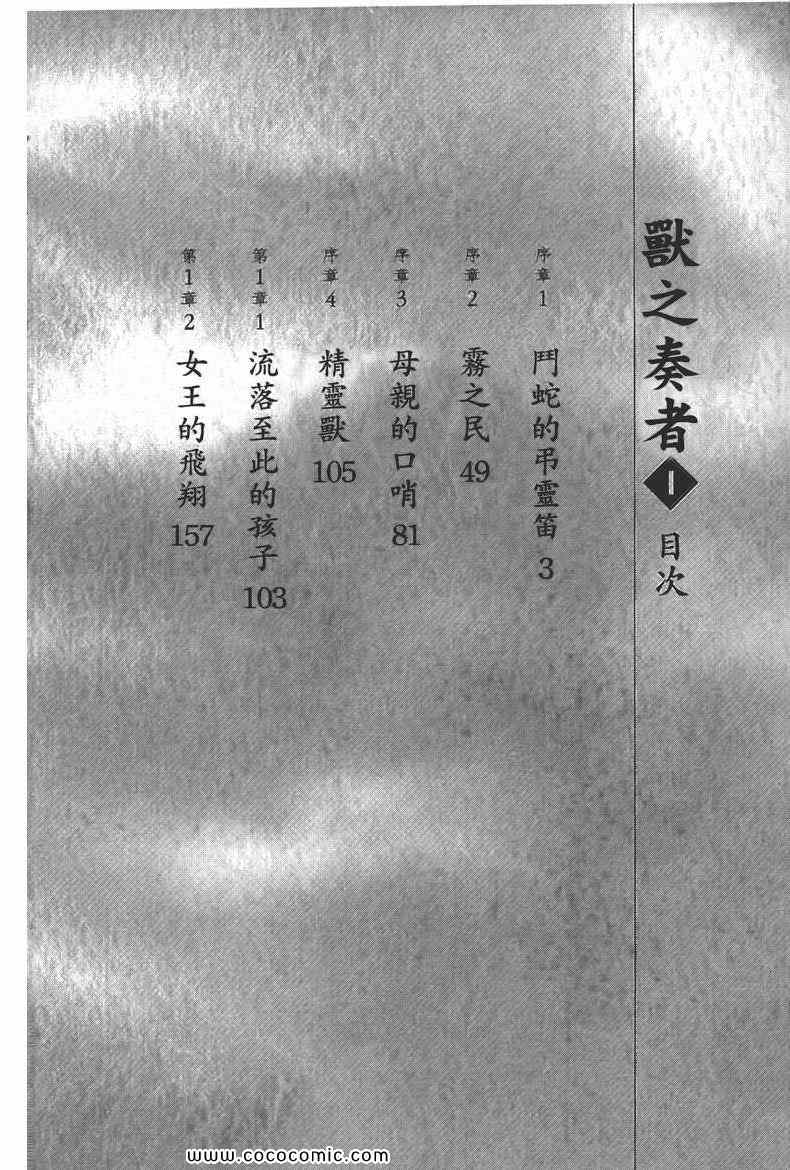 獸之奏者 I 目次
序章1 鬥蛇的弔靈笛 3
序章2 霧之民 49
序章3 母親的口哨 81
序章4 精靈獸 105
第1章1 流落至此的孩子 103
第1章2 女王的飛翔 157
www.cococomic.com